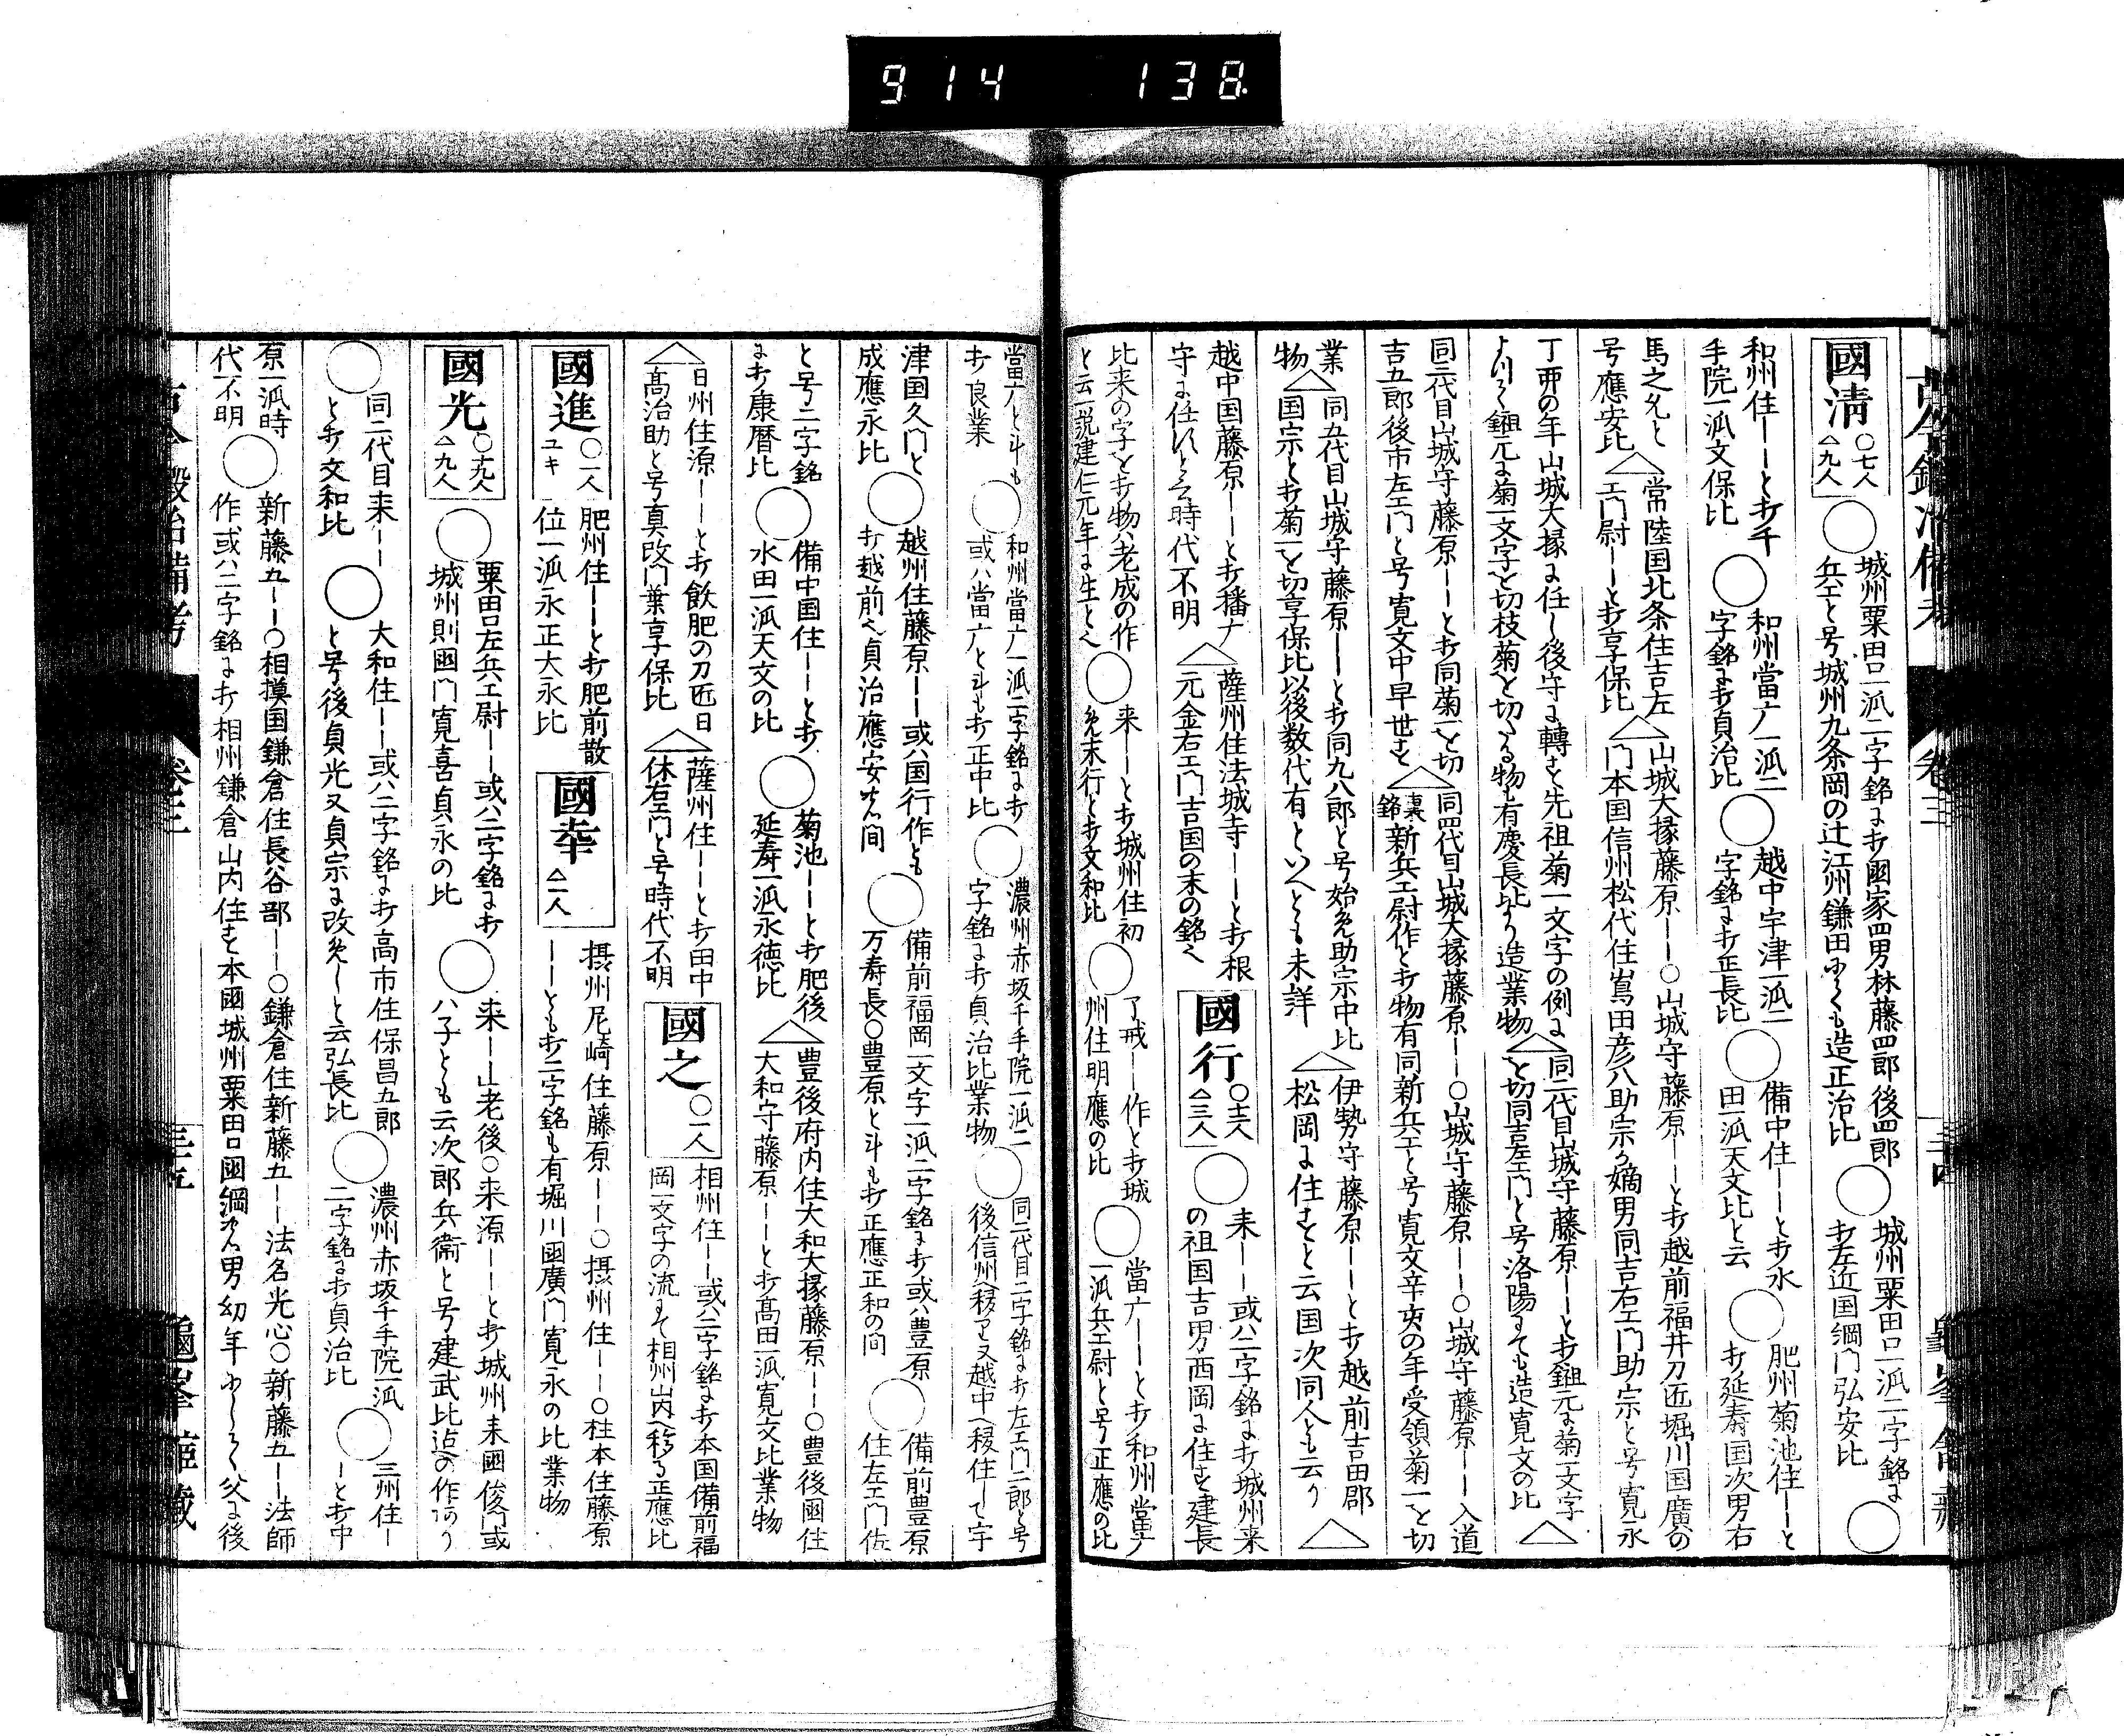 914 138
國清 ○七人 △九人
○城州粟田口一派二字銘ニ打國家四男林藤四郎後四郎
兵エと号城州九条岡の辻江州鎌田にても造正治比
○城州粟田口一派二字銘に
打左近国綱門弘安比
○
和州住ーーと打千
手院一派文保比
○和州當广一派二
字銘に打貞治比
○越中宇津一派二
字銘に打正長比
○備中住ーーと打水
田一派天文比と云
○肥州菊池住ーーと
打延寿国次男右
馬之允と
号應安比
△常陸国北条住吉左
エ門尉ーーと打享保比
△山城大掾藤原ーー○山城守藤原ーーと打越前福井刀匠堀川国廣の
門本国信州松代住嶌田彦八助宗か嫡男同吉右エ門助宗と号寛永
丁酉の年山城大掾に任し後守に轉す先祖菊一文字の例に
よりて鎺元に菊一文字を切枝菊を切たる物も有慶長比より造業物
△同二代目山城守藤原ーーと打鎺元に菊一文字
を切同吉左エ門と号洛陽にても造寛文の比
△
同三代目山城守藤原ーーと打同菊一を切
吉五郎後市左エ門と号寛文中早世す
△同四代目山城大掾藤原ーー○山城守藤原ーー○山城守藤原ーー入道
裏銘新兵エ尉作と打物有同新兵エと号寛文辛亥の年受領菊一を切
業
物
△同五代目山城守藤原ーーと打同九八郎と号始め助宗中比
国宗と打菊一を切享保比以後数代有といへとも未詳
△伊勢守藤原ーーと打越前吉田郡
松岡に住すと云国次同人とも云り
△
越中国藤原ーーと打播广
守に任すと云時代不明
△薩州住法城寺ーーと打根
元金右エ門吉国の末の銘也
國行 ○十二人 △三人
○来ーー或ハ二字銘に打城州来
の祖国吉男西岡に住す建長
比来の字を打物ハ老成の作
と云一説建仁元年に生と也
○来ーーと打城州住初
め末行と打文和比
○了戒ーー作と打城
州住明應の比
○當广ーーと打和州當广
一派兵エ尉と号正應の比
當广と斗も
打良業
○和州當广一派二字銘に打
或ハ當广と斗も打正中比
○濃州赤坂千手院一派二
字銘に打貞治比業物
○同二代目二字銘に打左エ門二郎と号
後信州へ移り又越中へ移住して字
津国久門と
成應永比
○越州住藤原ーー或ハ国行作とも
打越前也貞治應安之間
○備前福岡一文字一派二字銘に打或ハ豊原
万寿長○豊原と斗も打正應正和の間
○備前豊原
住左エ門佐
と号二字銘
に打康暦比
○備中国住ーーと打
水田一派天文の比
○菊池ーーと打肥後
延寿一派永徳比
△豊後府内住大和大掾藤原ーー○豊後國住
大和守藤原ーーと打高田一派寛文比業物
△日州住源ーーと打飫肥の刀匠日
高治助と号真改門葉享保比
△薩州住ーーと打田中
休右エ門と号時代不明
國之 ○一人
相州住ーー或ハ二字銘に打本国備前福
岡一文字の流にて相州山内へ移る正應比
國進 ○一人 ユキ
肥州住ーーと打肥前散
位一派永正大永比
國幸 △一人
摂州尼崎住藤原ーー○摂州住ーー○柱本住藤原
ーーとも打二字銘も有堀川國廣門寛永の比業物
國光 ○十九人 △九人
○粟田口左兵エ尉ーー或ハ二字銘に打
城州則國門寛喜貞永の比
○来ー山老後○来源ーーと打城州来國俊門或
ハ子とも云次郎兵衞と号建武比迄の作あり
○同二代目来ーー
と打文和比
○大和住ーー或ハ二字銘に打高市住保昌五郎
と号後貞光又貞宗に改めしと云弘長比
○濃州赤坂千手院一派
二字銘に打貞治比
○三州住ー
ーと打中
原一派時
代不明
○新藤五ーー○相摸国鎌倉住長谷部ーー○鎌倉住新藤五ーー法名光心○新藤五ーー法師
作或ハ二字銘に打相州鎌倉山内住す本國城州粟田口國綱之男幼年にして父に後
古今鍛冶備考 卷三 三十五